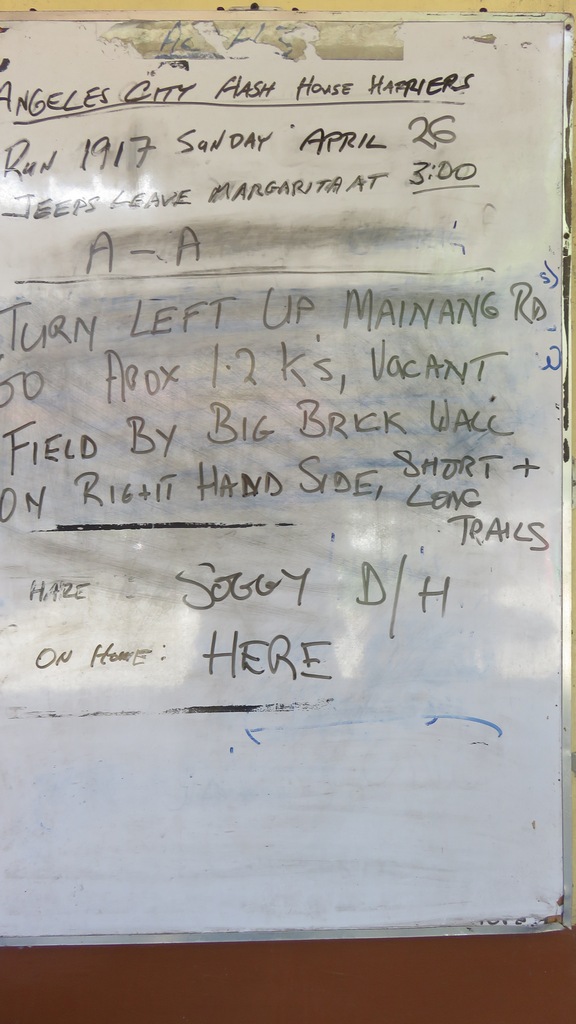 ANGELES CITY HASH HOUSE HARRIERS
RUN 1917 SUNDAY APRIL 26
JEEPS LEAVE MARGARITA AT 3:00
A - A
TURN LEFT UP MAINANG RD
GO APOX 1.2 K's, VACANT
FIELD BY BIG BRICK WALL
ON RIGHT HAND SIDE, SHORT +
LONG
TRAILS
HARE : SOGGY D/H
ON HOME: HERE